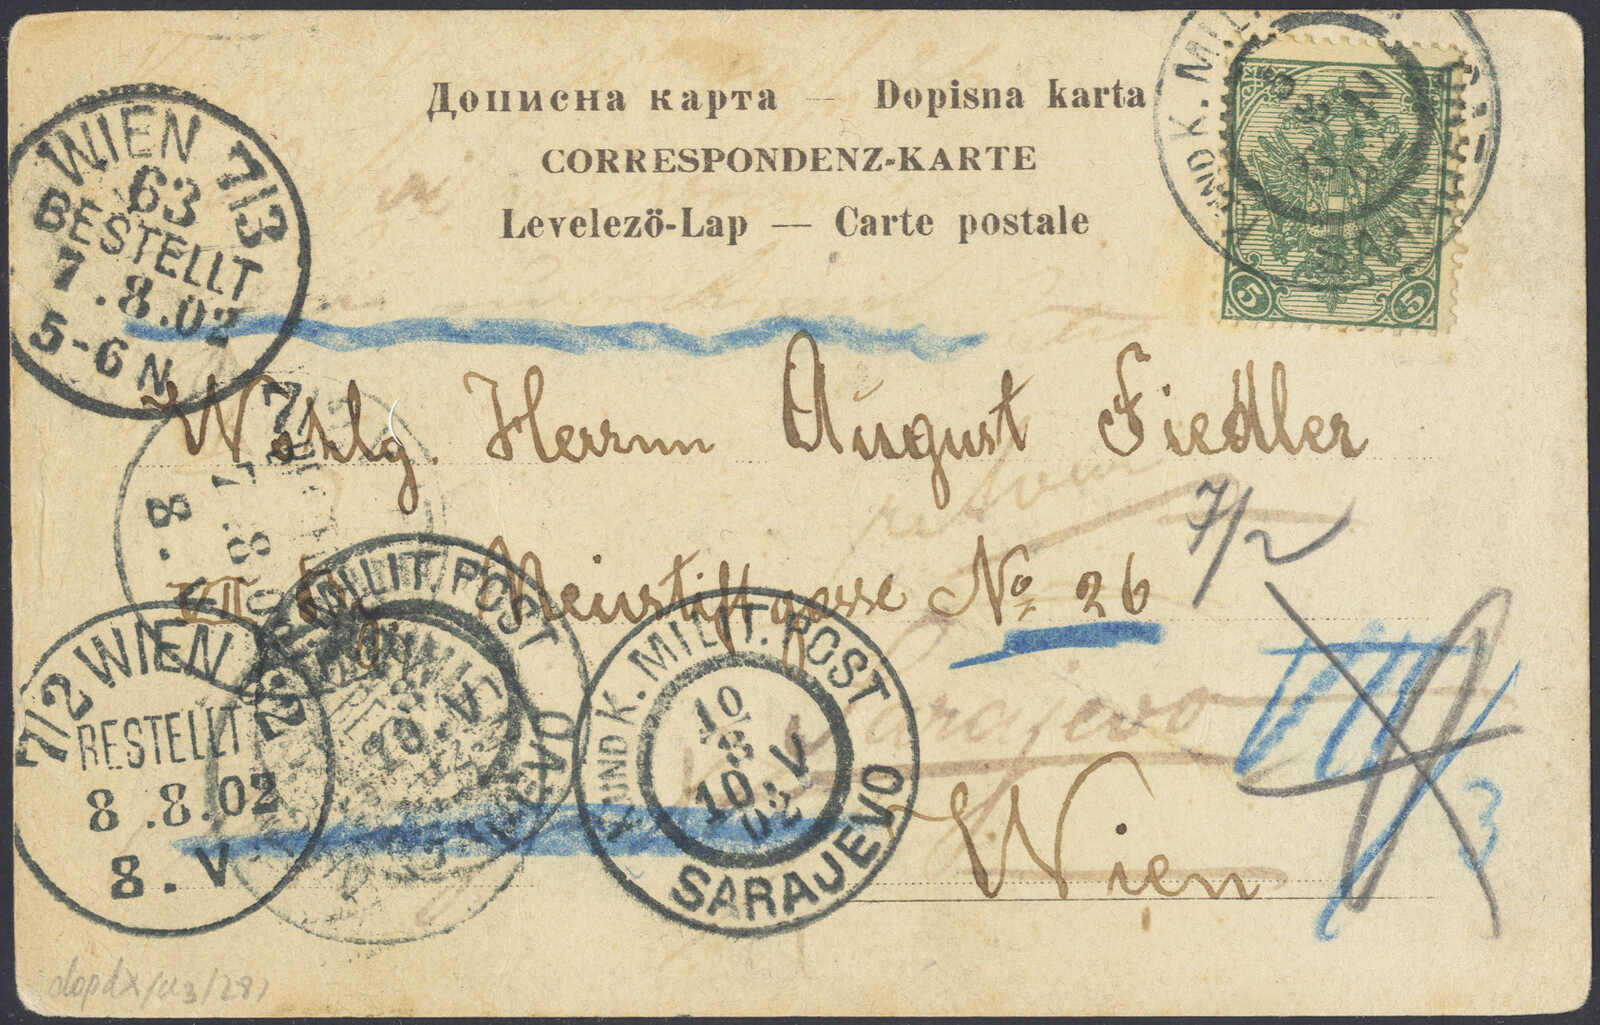 Дописна карта — Dopisna karta
CORRESPONDENZ-KARTE
Levelező-Lap — Carte postale
5 5
WIEN 7/3
63
BESTELLT
7.8.02
5-6 N
Wohlg. Herrn August Fiedler
retour
7/2
VII Neustiftgasse No 26
Sarajevo
VII
3
Wien
7/2 WIEN
BESTELLT
8.8.02
8.V
MILIT. POST
10.V
K UND K. MILIT. POST
10
8
10.V
02
SARAJEVO
K. MIL